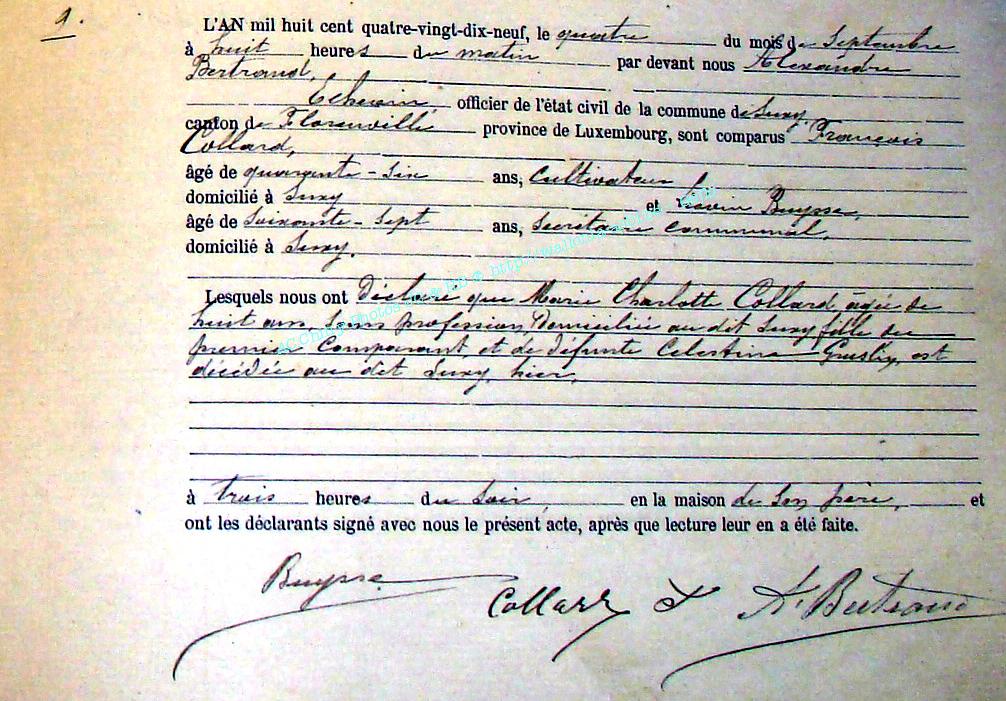 9.
L'AN mil huit cent quatre-vingt-dix-neuf, le quatre du mois de Septembre
à huit heures du matin par devant nous Alexandre
Bertrand,
Echevin, officier de l'état civil de la commune de Suxy
canton de Florenville province de Luxembourg, sont comparus François
Collard,
âgé de quarante-six ans, Cultivateur
domicilié à Suxy et Livin Buysse,
âgé de Soixante-Sept ans, Secrétaire Communal,
domicilié à Suxy.
Lesquels nous ont Déclaré que Marie Charlotte Collard, âgée de
huit ans, Sans profession, Domiciliée au dit Suxy, fille du
premier Comparant, et de défunte Celestine est
décédée au dit Suxy, hier,
à trois heures du Soir, en la maison de Son père, et
ont les déclarants signé avec nous le présent acte, après que lecture leur en a été faite.
Buysse
Collard F A. Bertrand